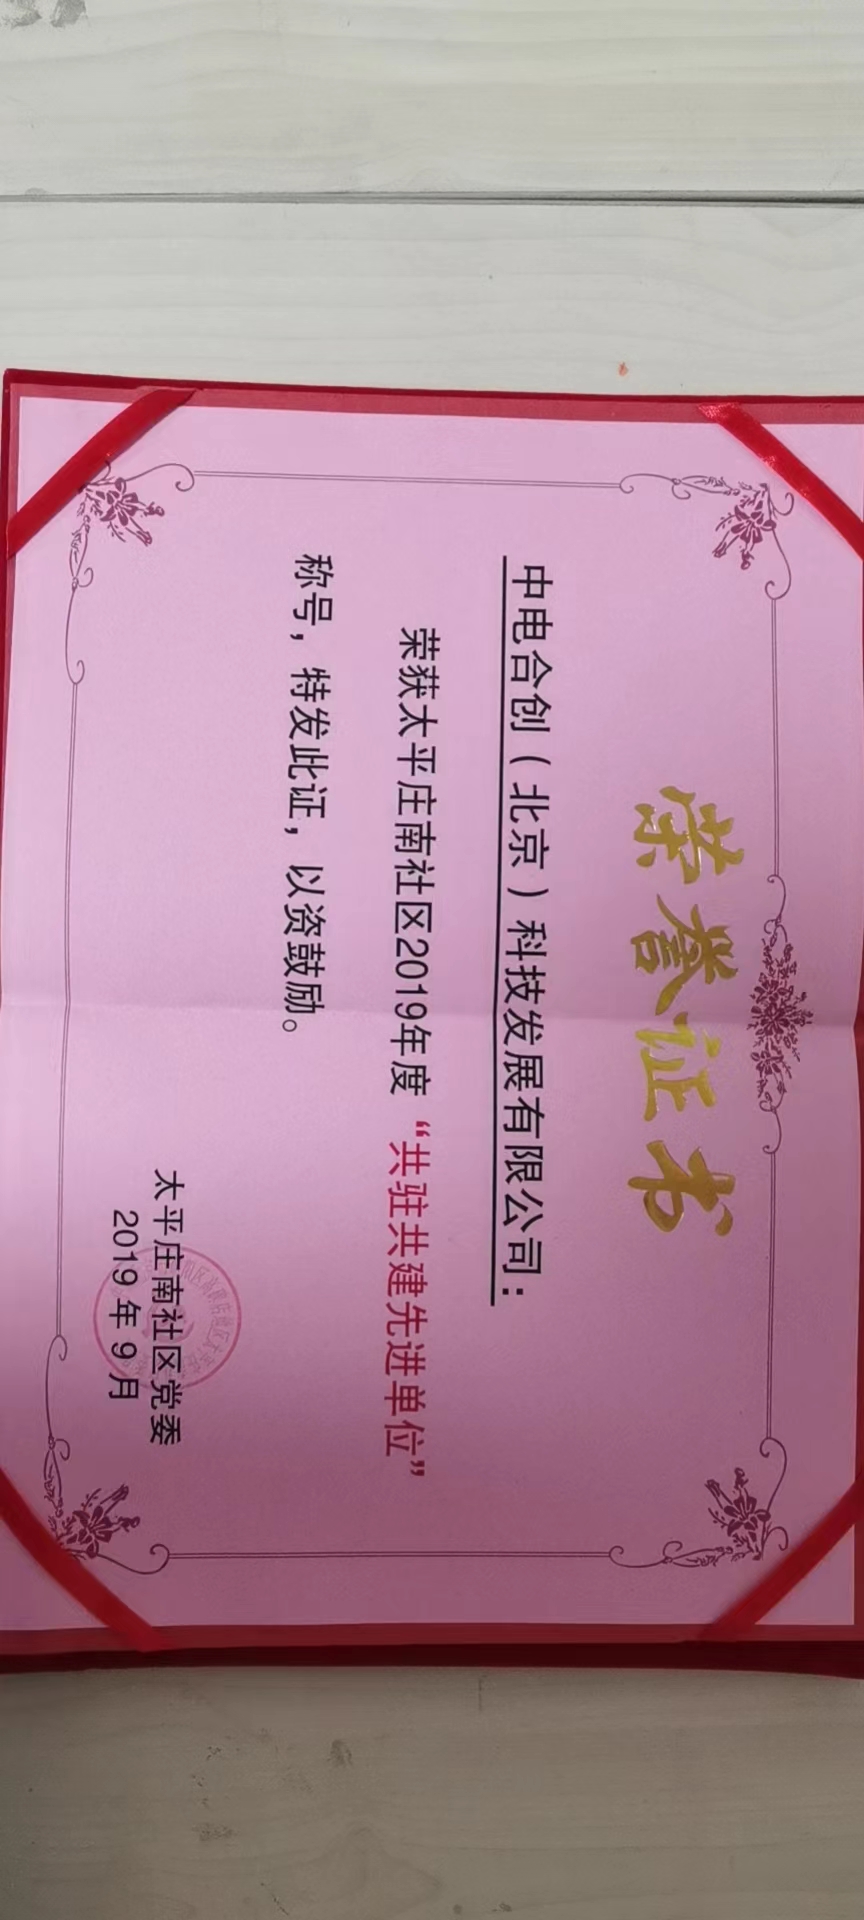 荣誉证书
中电合创（北京）科技发展有限公司：
荣获太平庄南社区2019年度“共驻共建先进单位”
称号，特发此证，以资鼓励。
太平庄南社区党委
2019年9月